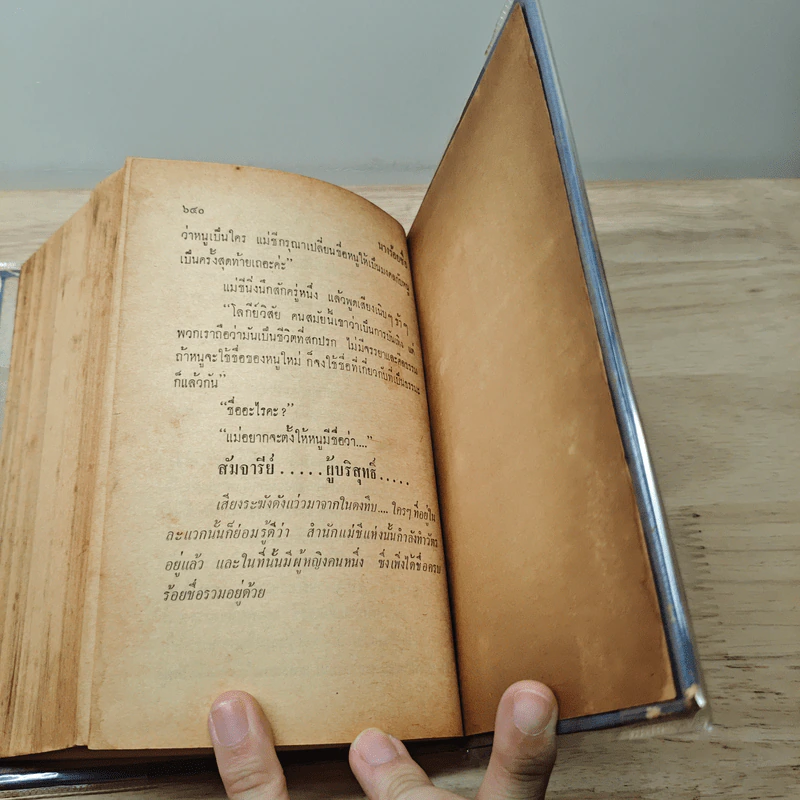 ๖๔๐
นางร้อยชื่อ
ว่าหนูเป็นใคร แม่ชีกรุณาเปลี่ยนชื่อหนูให้เป็นมงคลกับหนู
เป็นครั้งสุดท้ายเถอะค่ะ”
แม่ชีนิ่งนึกสักครู่หนึ่ง แล้วพูดเสียงเนิบๆ ช้าๆ
“โลกีย์วิสัย คนสมัยนี้เขาว่าเป็นการบันเทิง แต่
พวกเราถือว่ามันเป็นชีวิตที่สกปรก ไม่มีจรรยาและศีลธรรม
ถ้าหนูจะใช้ชื่อของหนูใหม่ ก็จงใช้ชื่อที่เกี่ยวกับที่เป็นธรรมะ
ก็แล้วกัน”
“ชื่ออะไรคะ?”
“แม่อยากจะตั้งให้หนูมีชื่อว่า....”
สัมจารีย์ . . . . . ผู้บริสุทธิ์ . . . . .
เสียงระฆังดังแว่วมาจากในดงทึบ.... ใครๆ ที่อยู่ใน
ละแวกนั้นก็ย่อมรู้ดีว่า สำนักแม่ชีแห่งนั้นกำลังทำวัตร
อยู่แล้ว และในที่นั้นมีผู้หญิงคนหนึ่ง ซึ่งเพิ่งได้ชื่อครบ
ร้อยชื่อรวมอยู่ด้วย